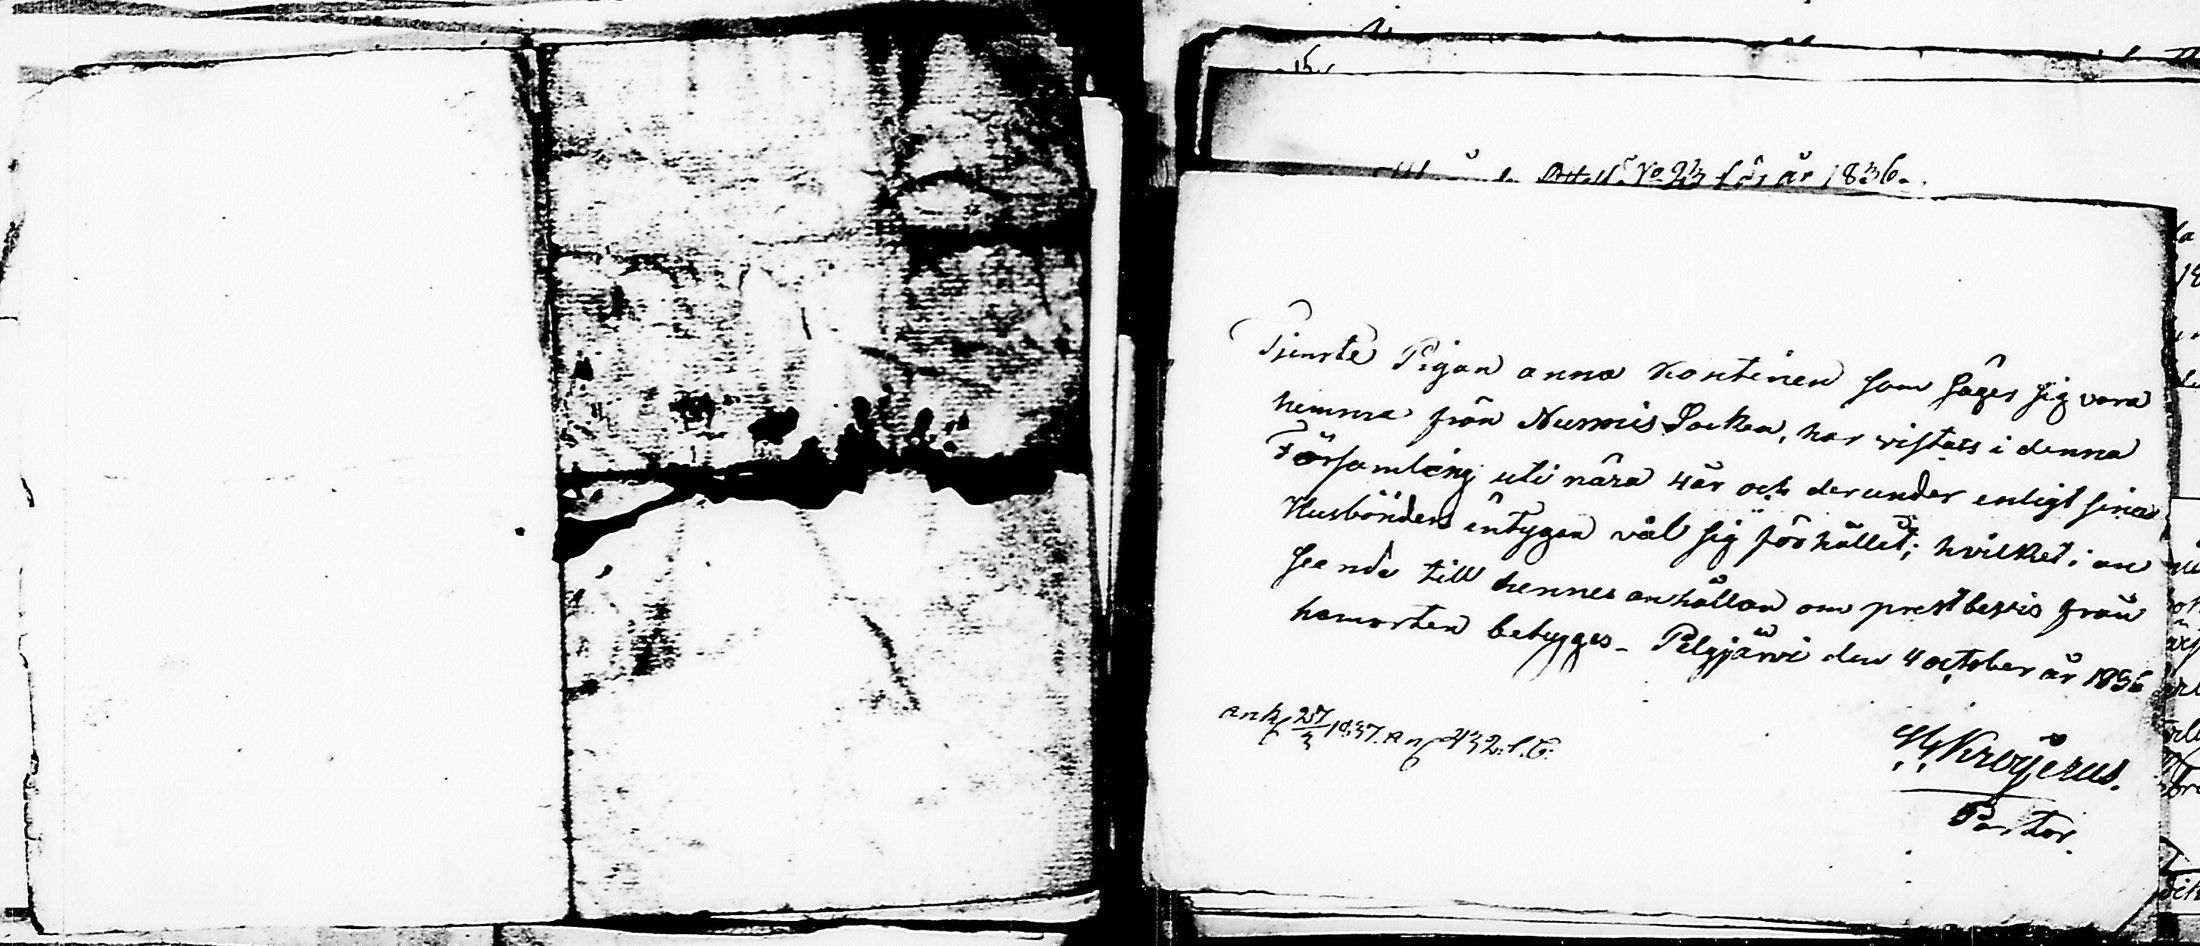 Attest No 23 för år 1836.
Tjenste Pigan anna Kontinen som säges sig vara
hemma från Nurmis Socken, har vistats i denna
Församling uti nära 4 år och derunder enligt sina
Husbönders intygan väl sig förhållit; hvilket i an
seende till hennes anhållan om prestbevis från
hemorten betygges. Pelgjärvi den 4 october år 1836
Krogerus.
Pastor.
ank 27/3 1837. an 432. S. C.